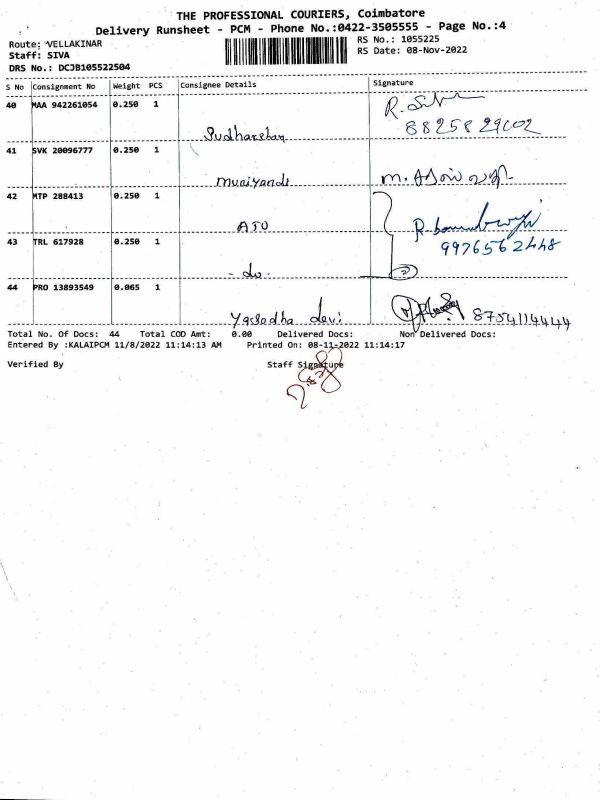 THE PROFESSIONAL COURIERS, Coimbatore
Delivery Runsheet - PCM - Phone No.:0422-3505555 - Page No.:4
Route: VELLAKINAR RS No.: 1055225
Staff: SIVA RS Date: 08-Nov-2022
DRS No.: DCJB105522504
S No Consignment No Weight PCS Consignee Details Signature
40 MAA 942261054 0.250 1
8825829602
Sudharshan
41 SVK 20096777 0.250 1
Muniyandi m.
42 MTP 288413 0.250 1
ATO
43 TRL 617928 0.250 1 9976562448
- do - 2
44 PRO 13893549 0.065 1
Yasodha devi 8754114444
Total No. Of Docs: 44 Total COD Amt: 0.00 Delivered Docs: Non Delivered Docs:
Entered By :KALAIPCM 11/8/2022 11:14:13 AM Printed On: 08-11-2022 11:14:17
Verified By Staff Signature